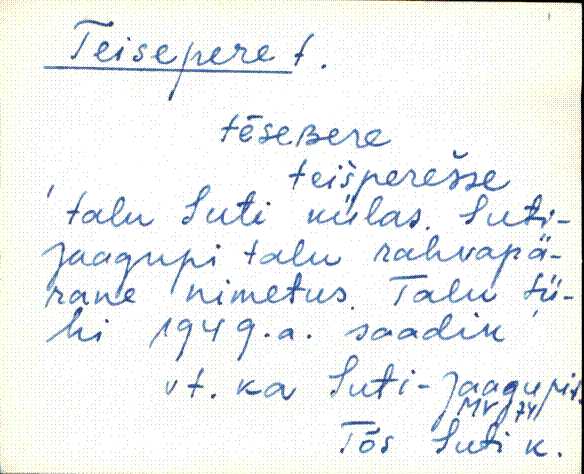 Teisepere t.
tēseʙere
teišperešse
'talu Suti külas. Suti-
Jaagupi talu rahvapä-
rane nimetus. Talu tü-
hi 1949. a. saadik'
vt. ka Suti-Jaagupi t.
MV 74
Tõs Suti k.